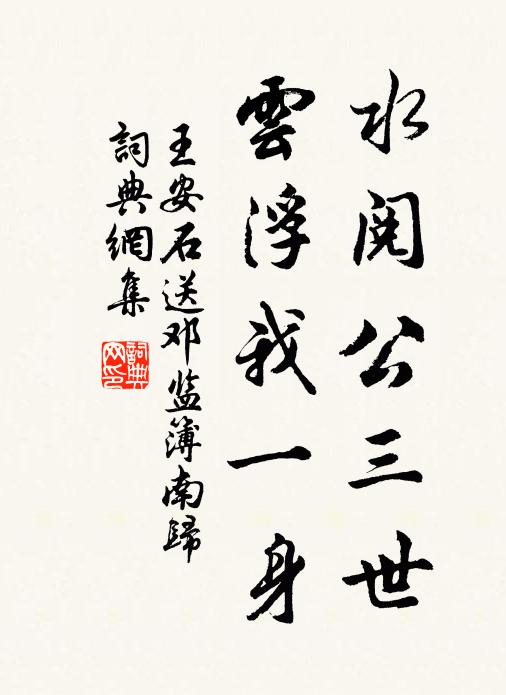 水閱公三世
雲浮我一身
王安石送邓監簿南歸
詞典網集
詞典
网印